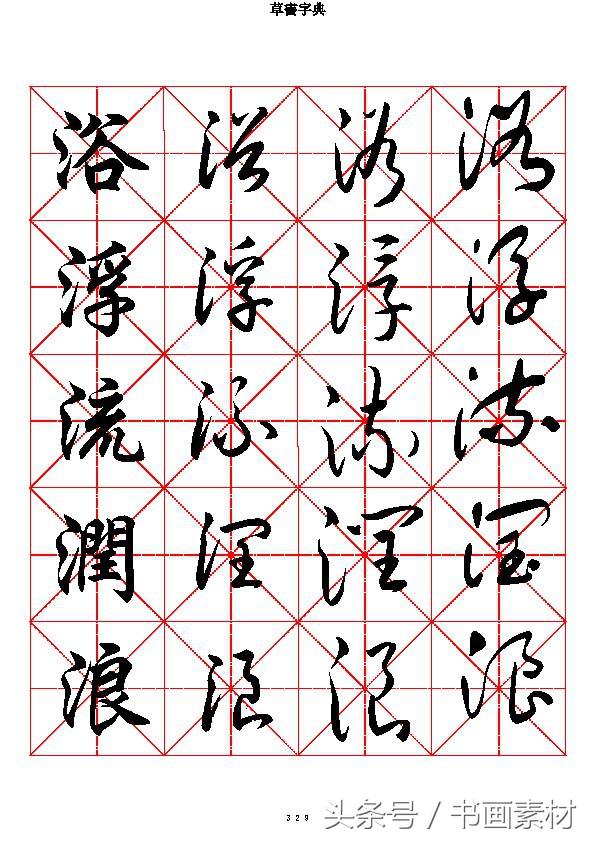 草書字典
浴 浴 浴 浴
浮 浮 浮 浮
流 流 流 流
潤 潤 潤 潤
浪 浪 浪 浪
329
头条号 / 书画素材